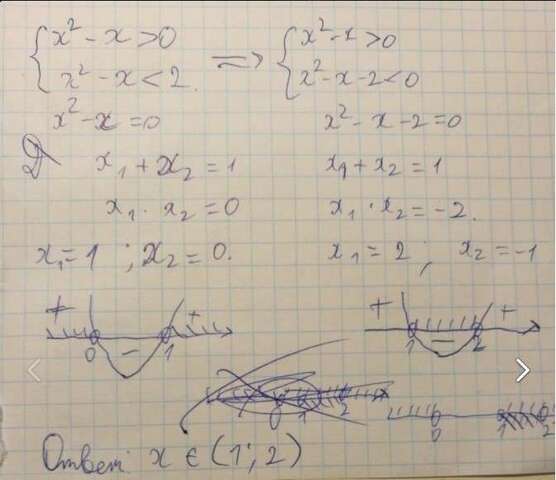 { x² - x > 0 => { x² - x > 0
x² - x < 2. x² - x - 2 < 0
x² - x = 0 x² - x - 2 = 0
D x₁ + x₂ = 1 x₁ + x₂ = 1
x₁ · x₂ = 0 x₁ · x₂ = -2.
x₁ = 1 ; x₂ = 0. x₁ = 2 ; x₂ = -1
+ 0 - 1 + + 1 - 2 +
0 1 2 0 1 2
Ответ: x ∈ (1; 2)